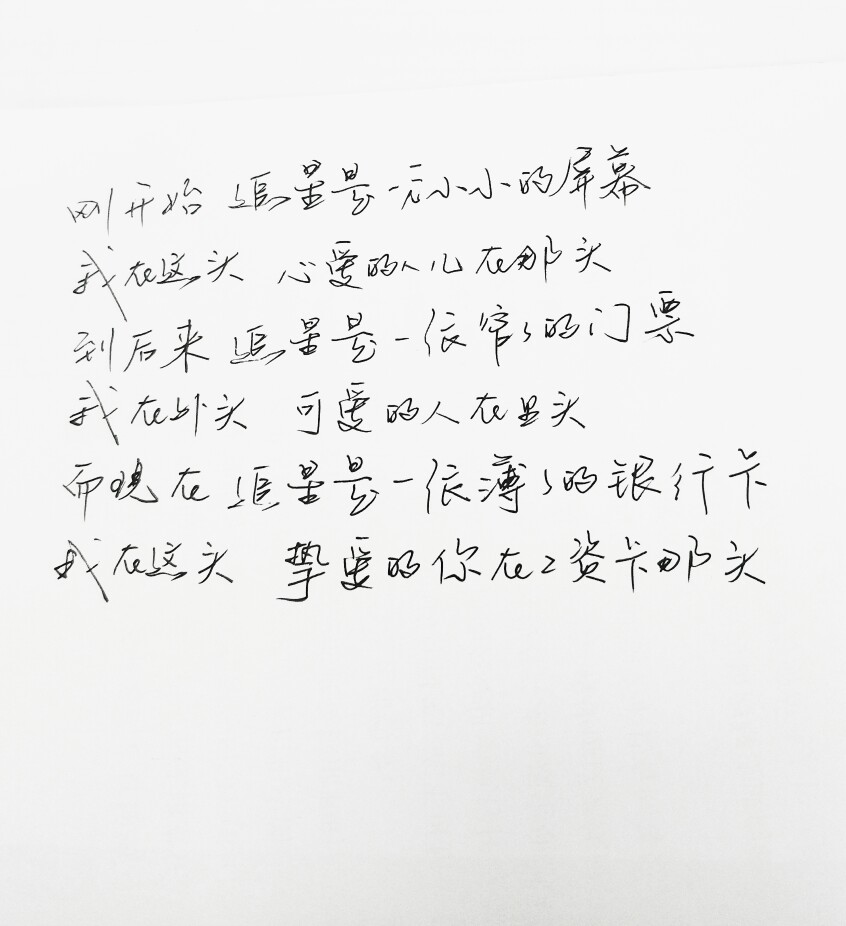 刚开始 追星是一方小小的屏幕
我在这头 心爱的人儿在那头
到后来 追星是一张窄窄的门票
我在外头 可爱的人在里头
而现在 追星是一张薄薄的银行卡
我在这头 挚爱的你在工资卡那头